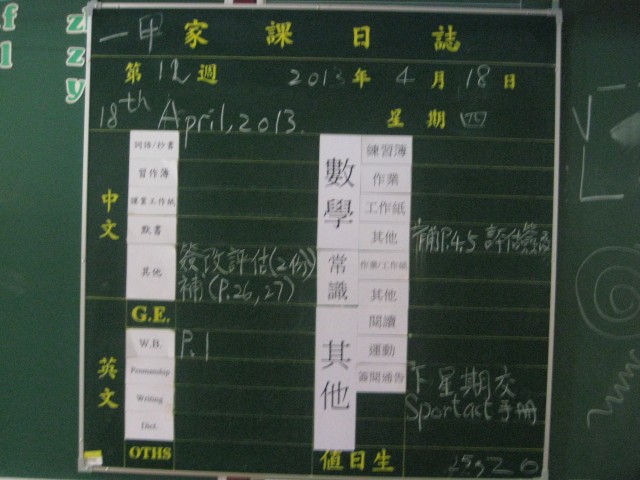 一甲 家課日誌
第 12 週 2013 年 4 月 18 日
18th April, 2013. 星期 四
中文
詞語/抄書
習作簿
課業工作紙
默書
其他 簽改評估(2份)
補(P.26,27)
G.E.
英文
W.B. P.1
Penmanship
Writing
Dict.
OTHS
數學
練習簿
作業
工作紙
其他 補P.4,5 評估簽改
常識
作業/工作紙
其他
其他
閱讀
運動
簽閱通告 下星期交
Sportact 手冊
值日生